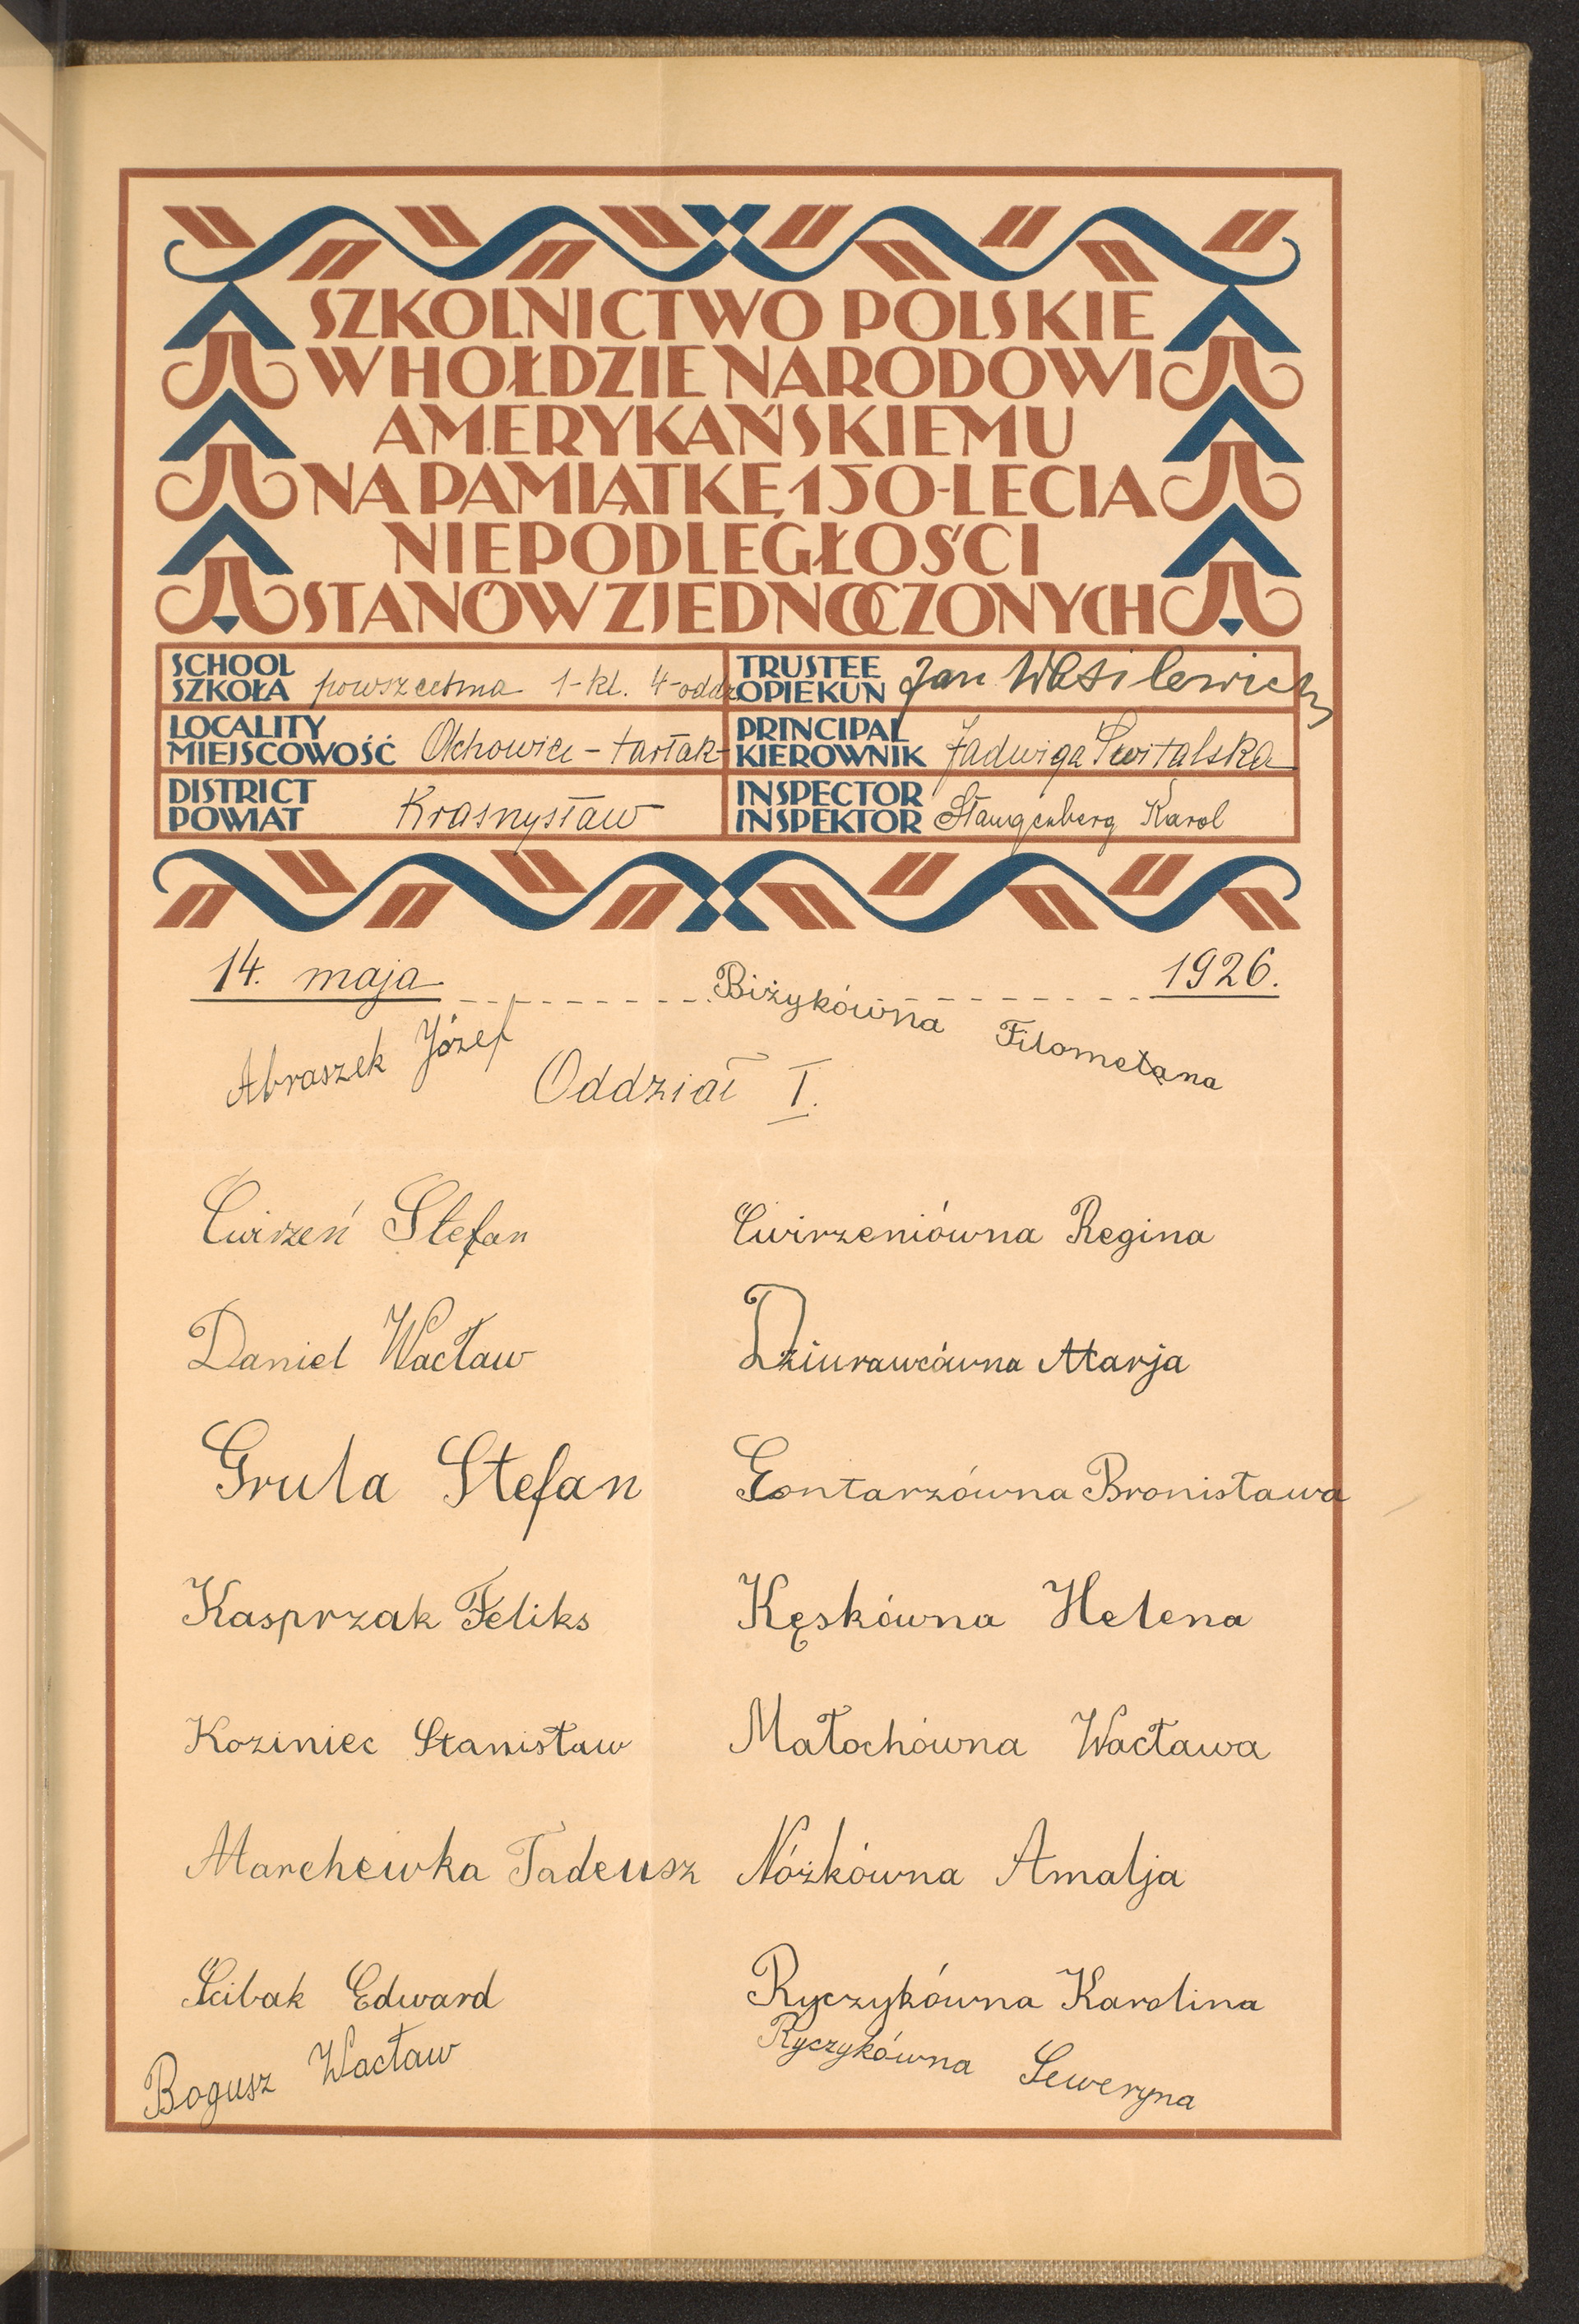 SZKOLNICTWO POLSKIE
W HOŁDZIE NARODOWI
AMERYKAŃSKIEMU
NA PAMIĄTKĘ 150-LECIA
NIEPODLEGŁOŚCI
STANÓW ZJEDNOCZONYCH
SCHOOL
SZKOŁA powszechna 1-kl. 4-oddz.
TRUSTEE
OPIEKUN Jan Wasilewicz
LOCALITY
MIEJSCOWOŚĆ Olchowiec - tartak
PRINCIPAL
KIEROWNIK Jadwiga Świtalska
DISTRICT
POWIAT Krasnystaw
INSPECTOR
INSPEKTOR Karol
14. maja 1926.
Abraszek Józef
Biżykówna Filomena
Oddział I.
Ćwirzeń Stefan
Ćwirzeniówna Regina
Daniel Wacław
Dziurawcówna Marja
Grula Stefan
Gontarzówna Bronisława
Kasprzak Feliks
Kęskówna Helena
Koziniec Stanisław
Małochówna Wacława
Marchewka Tadeusz
Nózkówna Amalja
Ścibak Edward
Ryczykówna Karolina
Bogusz Wacław
Ryczykówna Seweryna